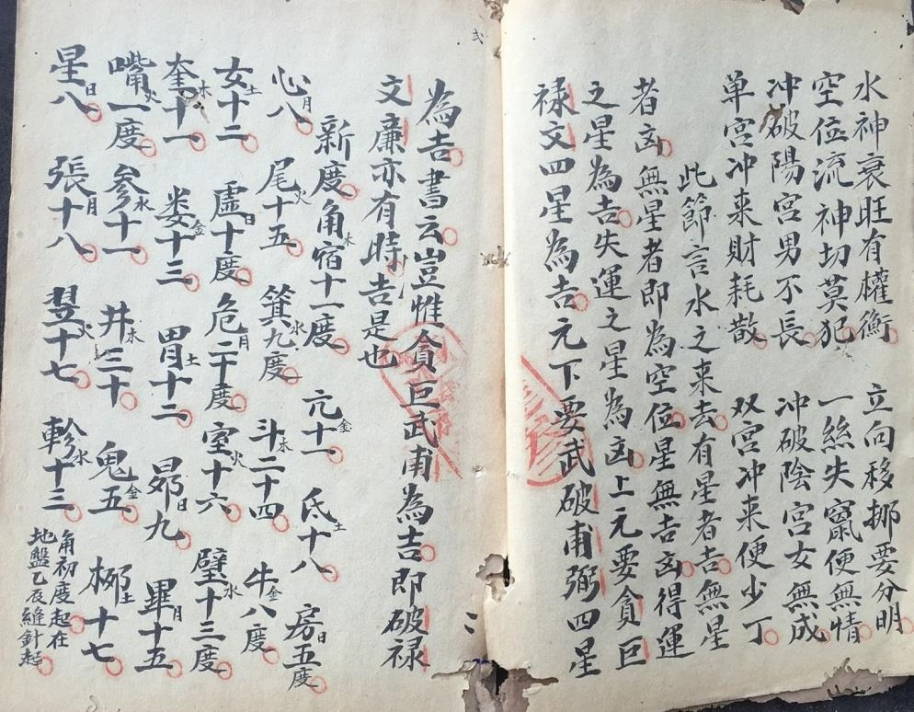 水神衰旺有權衡　立向移挪要分明
空位流神切莫犯　一絲失竄便無情
冲破陽宮男不長　冲破陰宮女無成
单宮冲来財耗散　双宮冲来便少丁
此節言水之来去有星者吉無星
者凶無星者即為空位星無吉凶得運
之星為吉失運之星為凶上元要貪巨
禄文四星為吉元下要武破甫弼四星
為吉書云豈惟貪巨武甫為吉即破禄
文廉亦有時吉是也
新度角木宿十一度　亢金十一　氐土十八　房日五度
心月八　尾火十五　箕水九度　斗木二十四　牛金八度
女土十二　虛日十度　危月二十度　室火十六　璧水十三度
奎木十一　娄金十三　胃土十二　昴日九　畢月十五
嘴火一度　参水十一　井木三十　鬼金五　栁土十七
星日八　張月十八　翌火十七　軫水十三
角初度起在
地盤乙辰縫針起